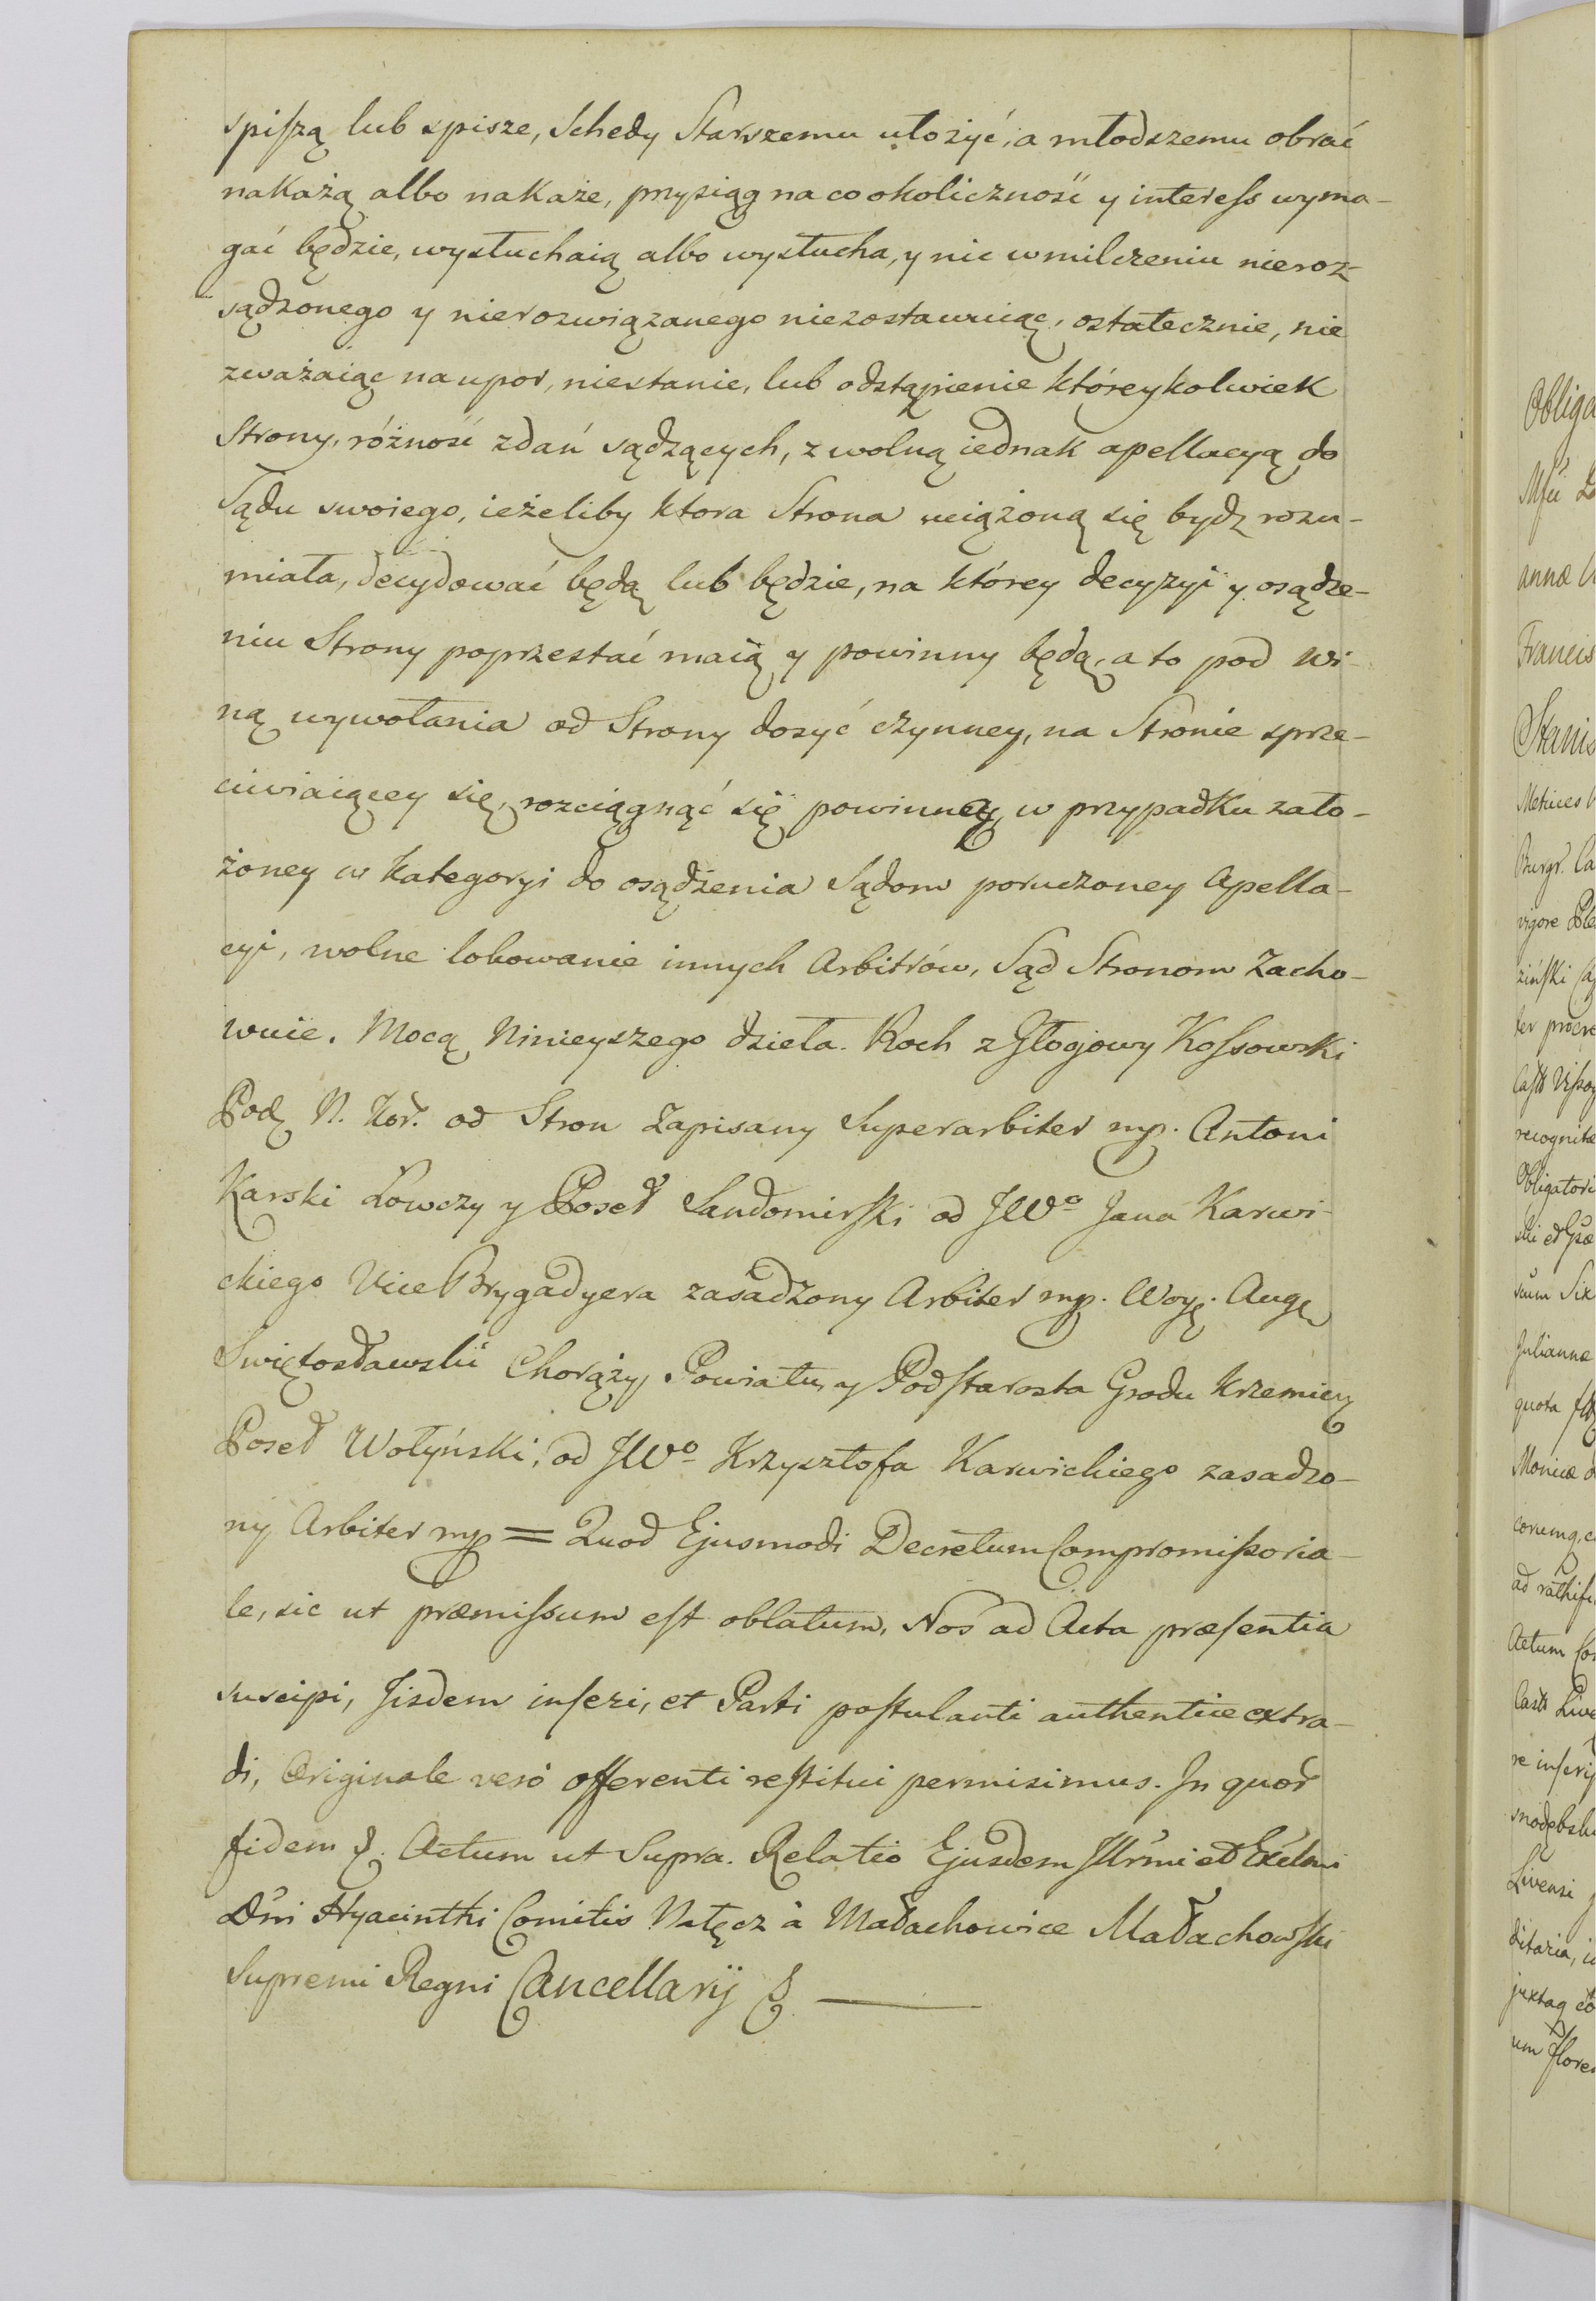 spiszą lub spisze, Schedy Starszemu ułożyć, a młodszemu obrać
nakażą albo nakaże, przysiąg na co okoliczność y interess wyma-
gać będzie, wysłuchaią albo wysłucha, y nic w milczeniu nieroz-
sądzonego y nierozwiązanego niezostawuiąc, ostatecznie, nie
zważaiąc na upor, niestanie, lub odstąpienie któreykolwiek
Strony, różność zdań sądzących, z wolną iednak apellacyą do
Sądu swoiego, ieżeliby ktora Strona uciążoną się bydź rozu-
miała, decydować będą lub będzie, na którey decyzyi y osądze-
niu Strony poprzestać maią y powinny będą, a to pod wi-
ną wywołania od Strony dosyć czynney, na Stronie sprze-
ciwiaiącey się, rozciągnąć się powinney, w przypadku zało-
żoney w kategoryi do osądzenia Sądom poruczoney Apella-
cyi, wolne lokowanie innych Arbitrów, Sąd Stronom Zacho-
wuie. Mocą Ninieyszego dzieła. Roch z Głogowy Kossowski
Pod. N. Kor. od Stron Zapisany Superarbiter mp. Antoni
Karski Łowczy y Poseł Sandomirski od JWo Jana Karwi-
ckiego Vice Brygadyera zasadzony Arbiter mp. Woy. Aug.
Swiętosławski Chorąży Powiatu y Podstarosta Grodu Krzemien.
Poseł Wołyński, od JWo Krzysztofa Karwickiego zasadzo-
ny Arbiter mp = Quod Ejusmodi Decretum Compromissoria-
le, sic ut præmissum est oblatum, Nos ad Acta præsentia
suscipi, Jisdem inseri, et Parti postulanti authentice extra-
di, Originale verò offerenti restitui permisimus. In quor
fidem &. Actum ut Supra. Relatio Ejusdem Illrmi et Excelmi
Dni Hyacinthi Comitis Nałęcz à Małachowice Małachowski
Supremi Regni Cancellarij &
Obliga
annæ
Francis
Stanis
vigore
ter procre
recognitæ
Obligatori
Julianna
quota
Monicæ
Actum
Livensi
ditaria,
um Floren